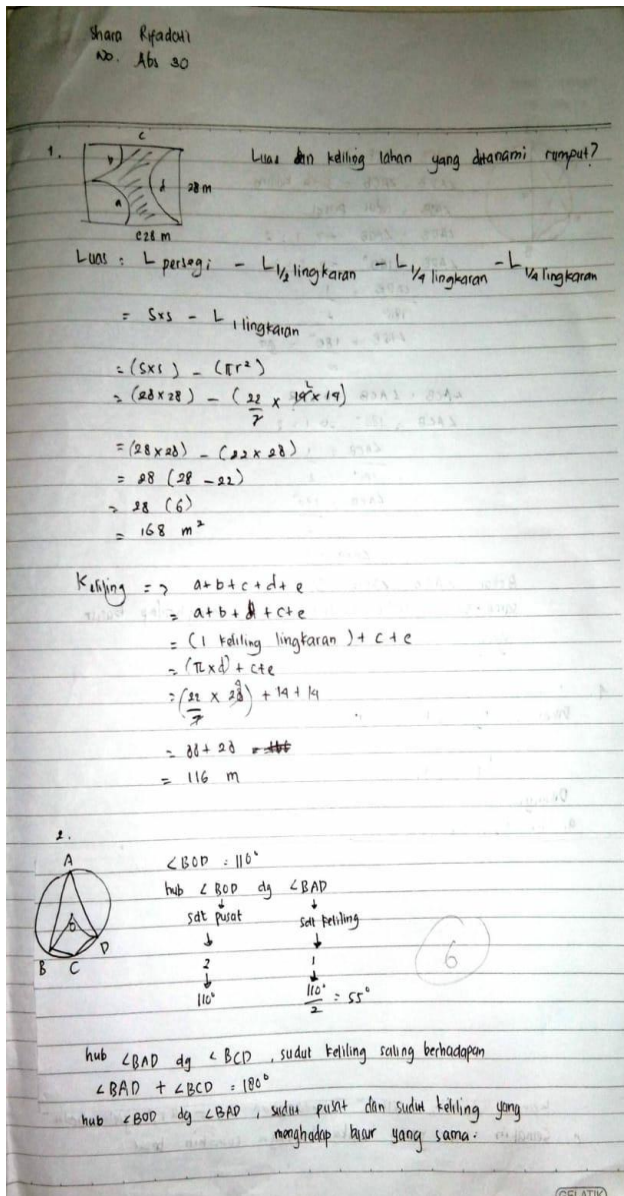 Shara Rifadati
No. Abs 30
1.
c
b
d
a
28 m
e 28 m
Luas dan keliling lahan yang ditanami rumput?
Luas : L persegi - L 1/2 lingkaran - L 1/4 lingkaran - L 1/4 lingkaran
= S×s - L 1 lingkaran
= (s×s) - (πr²)
= (28×28) - (22/7 × 14 2 × 14)
= (28×28) - (22×28)
= 28 (28 - 22)
= 28 (6)
= 168 m²
Keliling => a+b+c+d+e
= a+b+d+c+e
= (1 keliling lingkaran) + c + e
= (π×d) + c+e
= (22/7 × 28 4) + 14 + 14
= 88 + 28
= 116 m
2.
A
O
B C D
∠BOD = 110°
hub ∠BOD dg ∠BAD
↓ ↓
sdt pusat sdt keliling
↓ ↓
2 1
↓ ↓
110° 110°/2 = 55°
6
hub ∠BAD dg ∠BCD, sudut keliling saling berhadapan
∠BAD + ∠BCD = 180°
hub ∠BOD dg ∠BAD, sudut pusat dan sudut keliling yang
menghadap busur yang sama.
GELATIK